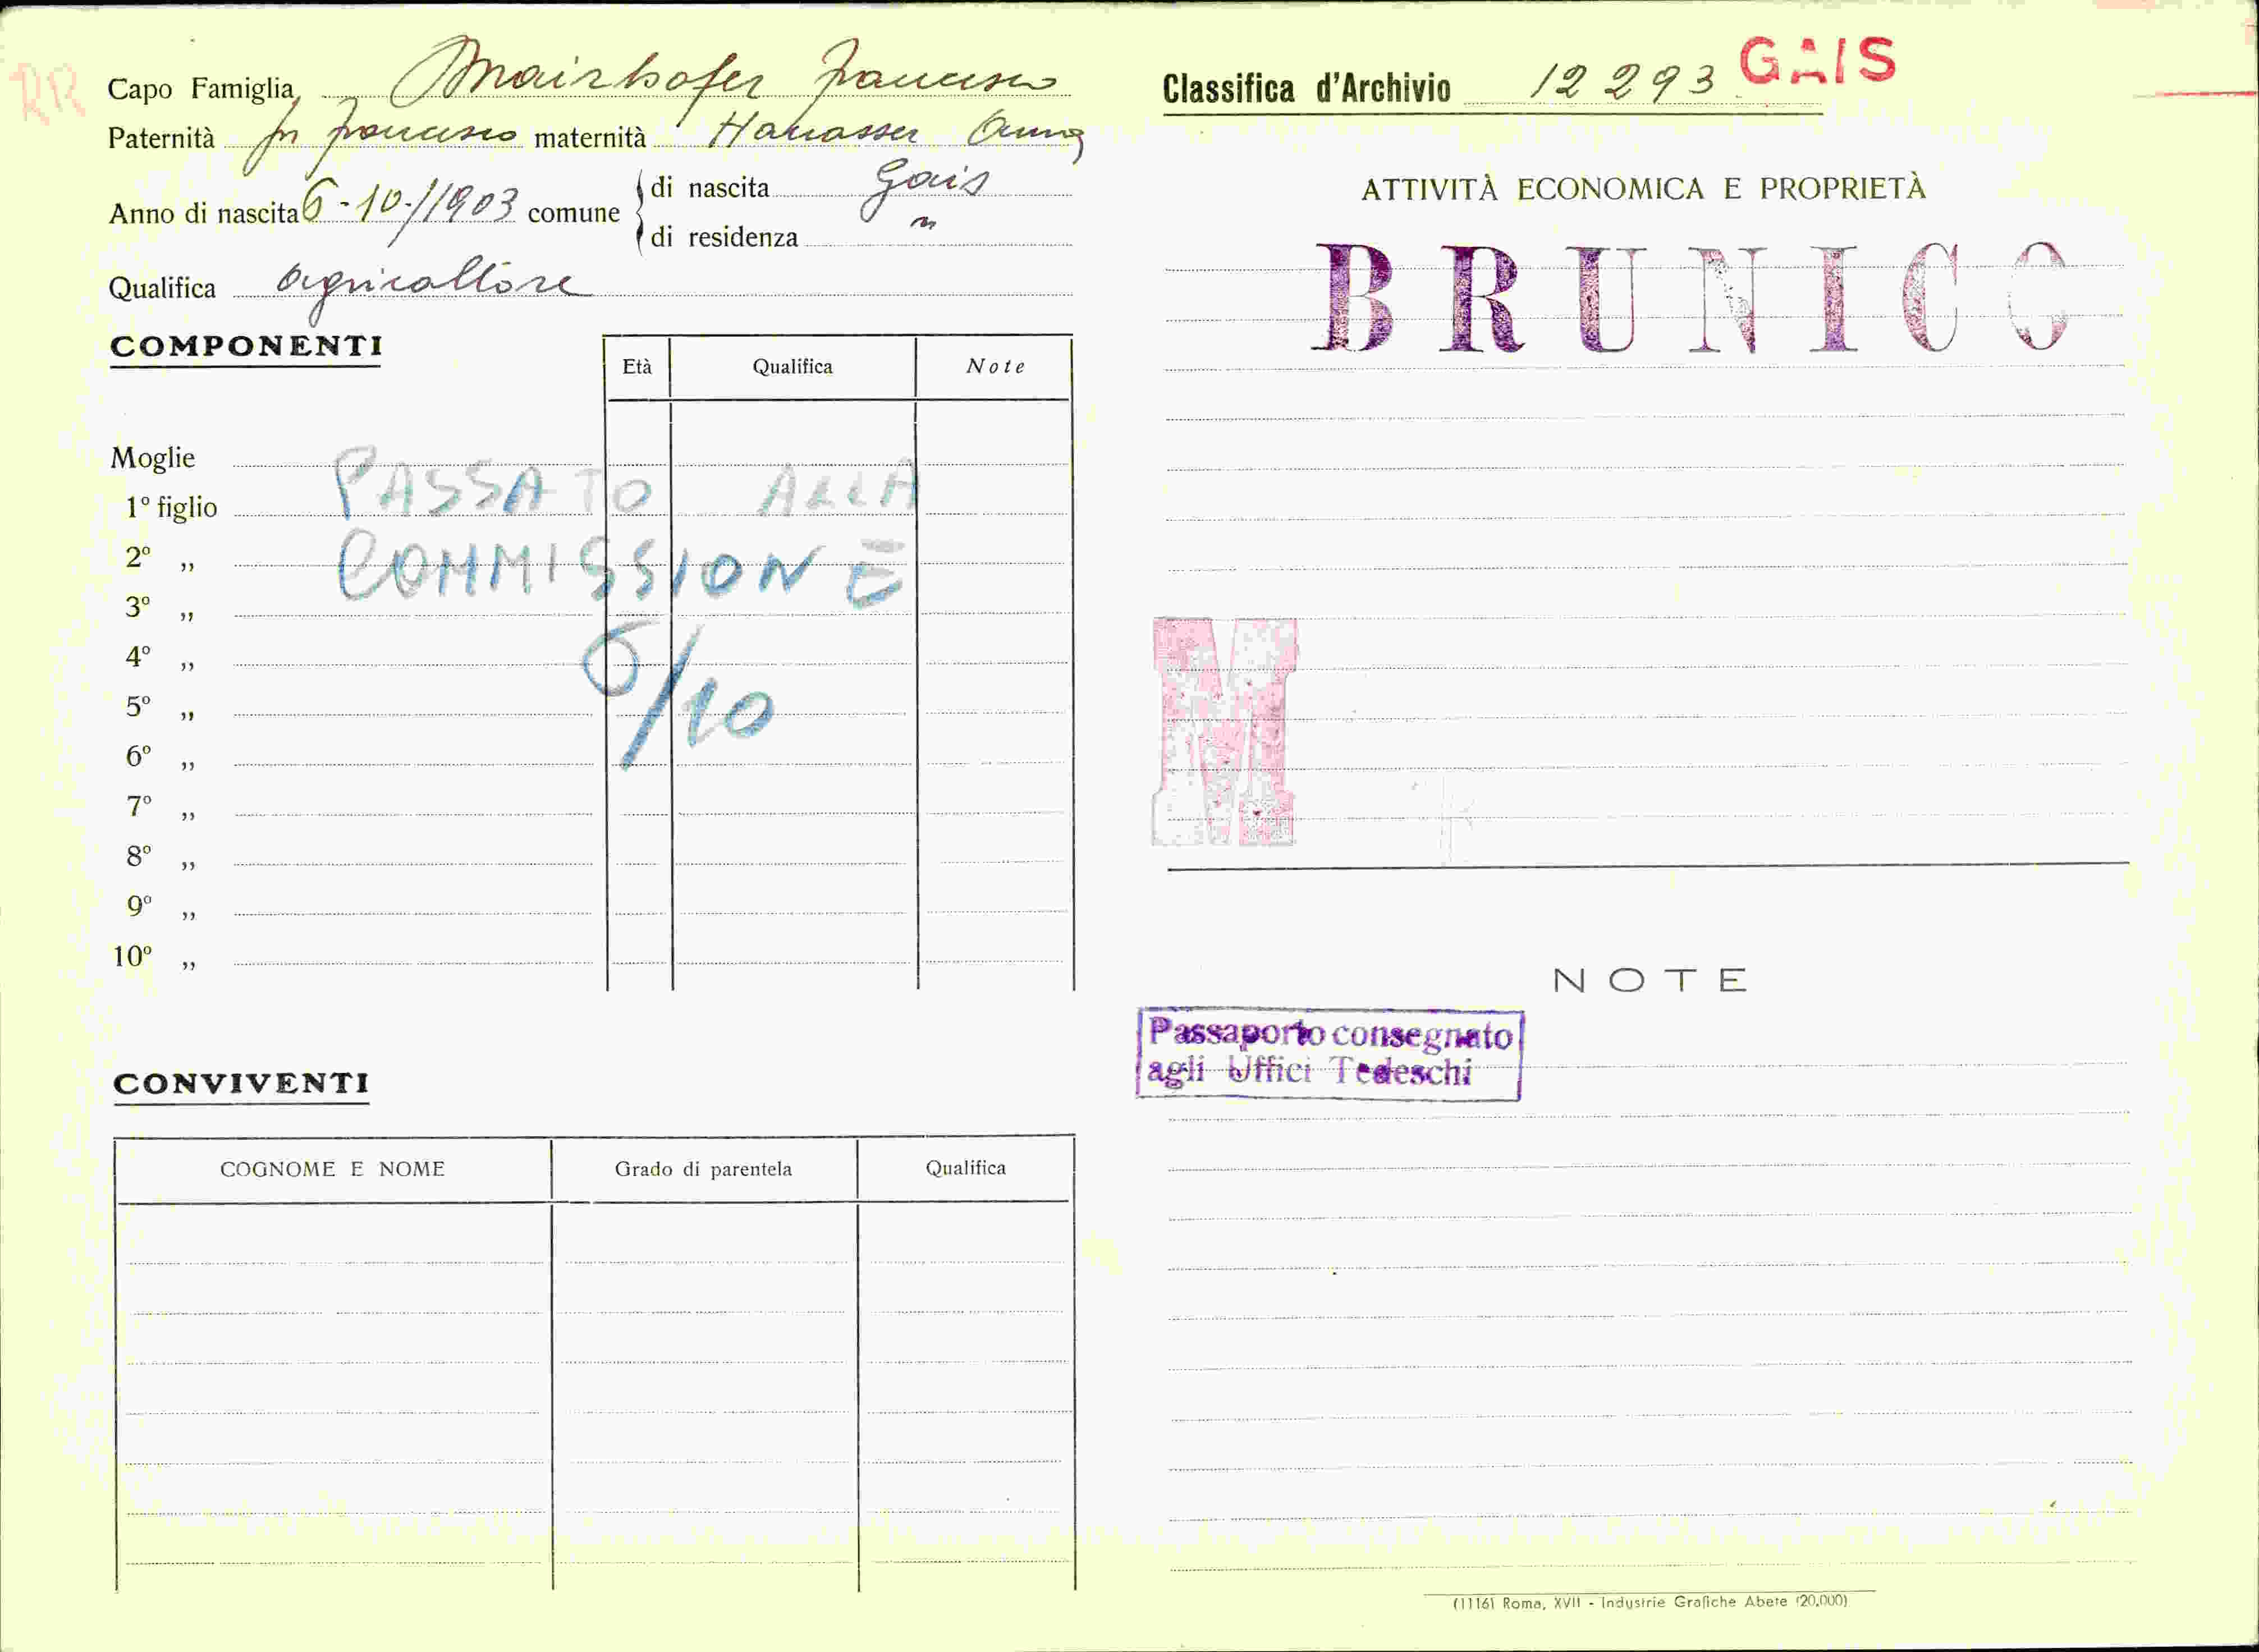 RR
Capo Famiglia Mairhofer Francesco
Paternità fu Francesco maternità Hanasser Anna
Anno di nascita 6-10-1903 comune di nascita Gais
di residenza "
Qualifica agricoltore
COMPONENTI
Età Qualifica Note
Moglie
PASSATO ALLA
1º figlio
2º „ COMMISSIONE
3º „
4º „ 6/10
5º „
6º „
7º „
8º „
9º „
10º „
CONVIVENTI
COGNOME E NOME Grado di parentela Qualifica
Classifica d'Archivio 12293 GAIS
ATTIVITÀ ECONOMICA E PROPRIETÀ
BRUNICO
M
NOTE
Passaporto consegnato
agli Uffici Tedeschi
(1116) Roma, XVII - Industrie Grafiche Abete (20.000)